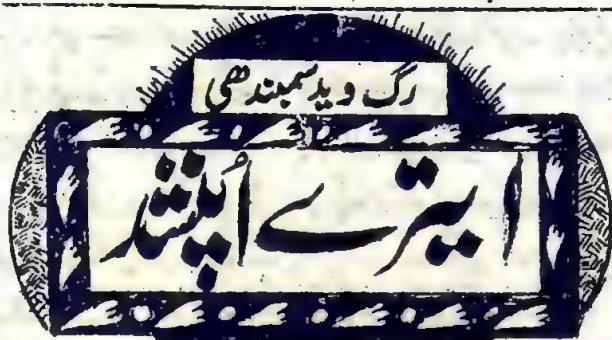 رگ وید سمبندھی
ایترے اُپنشد